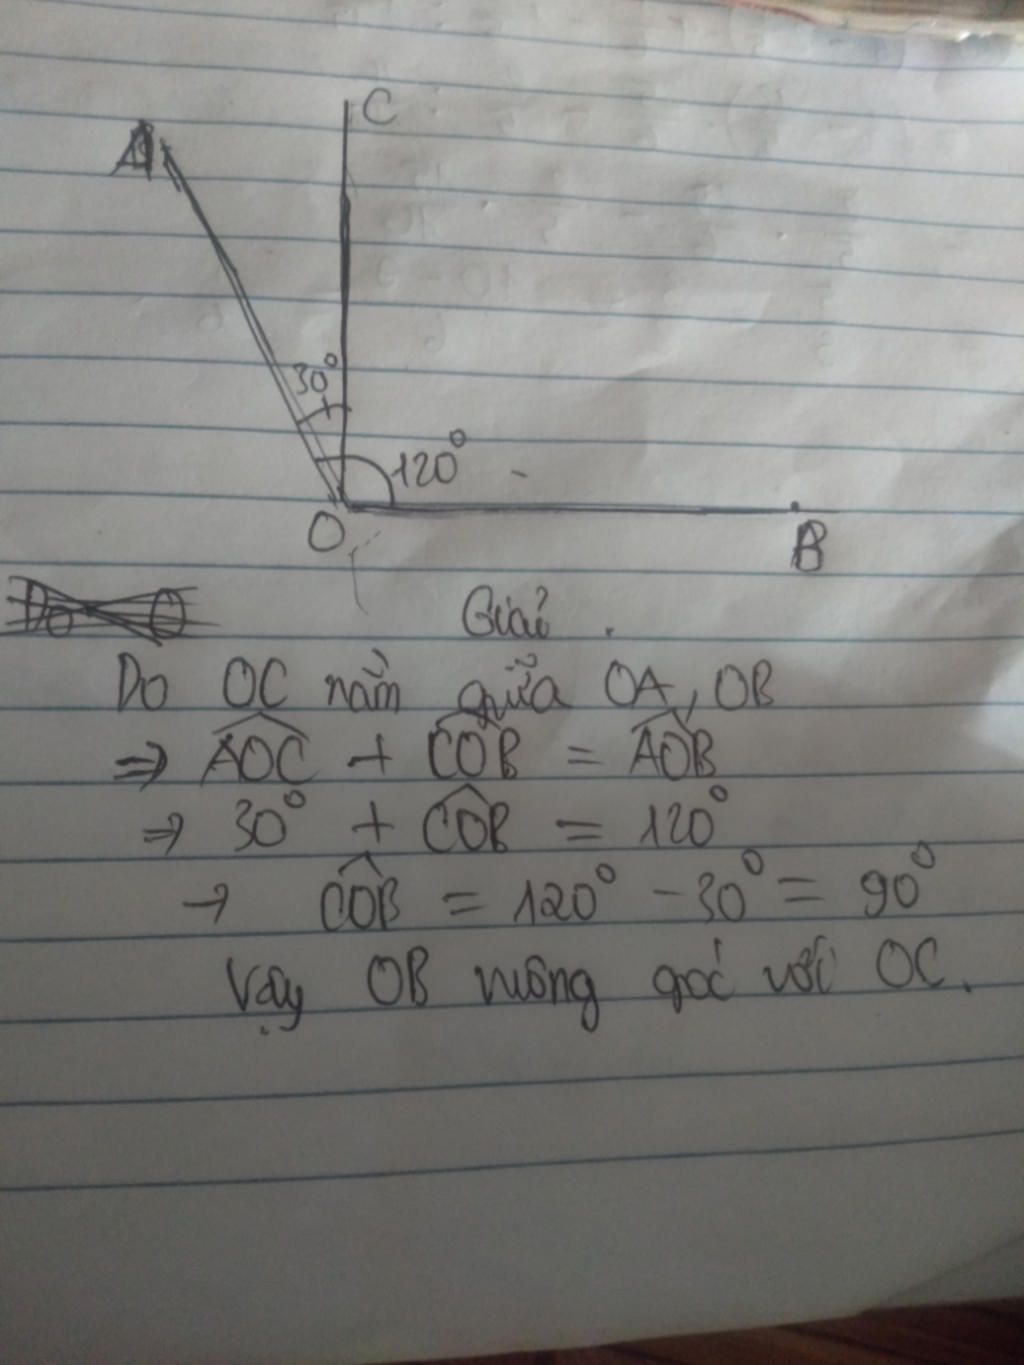 C
A
30°
120°
O
B
Giải.
Do OC nằm giữa OA, OB
⇒ AOC + COB = AOB
⇒ 30° + COB = 120°
→ COB = 120° - 30° = 90°
Vậy OB vuông góc với OC.